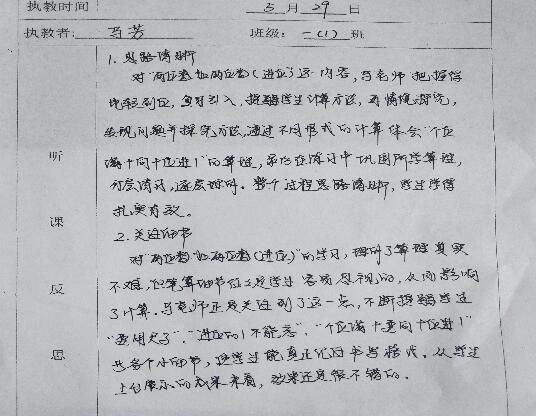 执教时间 3月29日
执教者: 马芳 班级: 一(1)班
听课反思
1. 思路清晰
对"两位数加两位数(进位)"这一内容,马老师把握得
比较到位,复习引入,提醒学生计算方法,再情境探究,
发现问题并探究方法,通过不同形式的计算体会"个位
满十向十位进1"的算理,最后在练习中巩固所学算理,
分层练习,逐层加深。整个过程思路清晰,学生学得
扎实有效。
2. 关注细节
对"两位数加两位数(进位)"的学习,理解了算理其实
不难,但笔算细节往往是学生容易忽视的,从而影响
了计算。马老师正是关注到了这一点,不断提醒学生
"要用尺子","进位的1不能忘","个位满十要向十位进1"
这各个小细节,使学生能真正记得书写格式。从学生
上台展示的成果来看,效果还是很不错的。